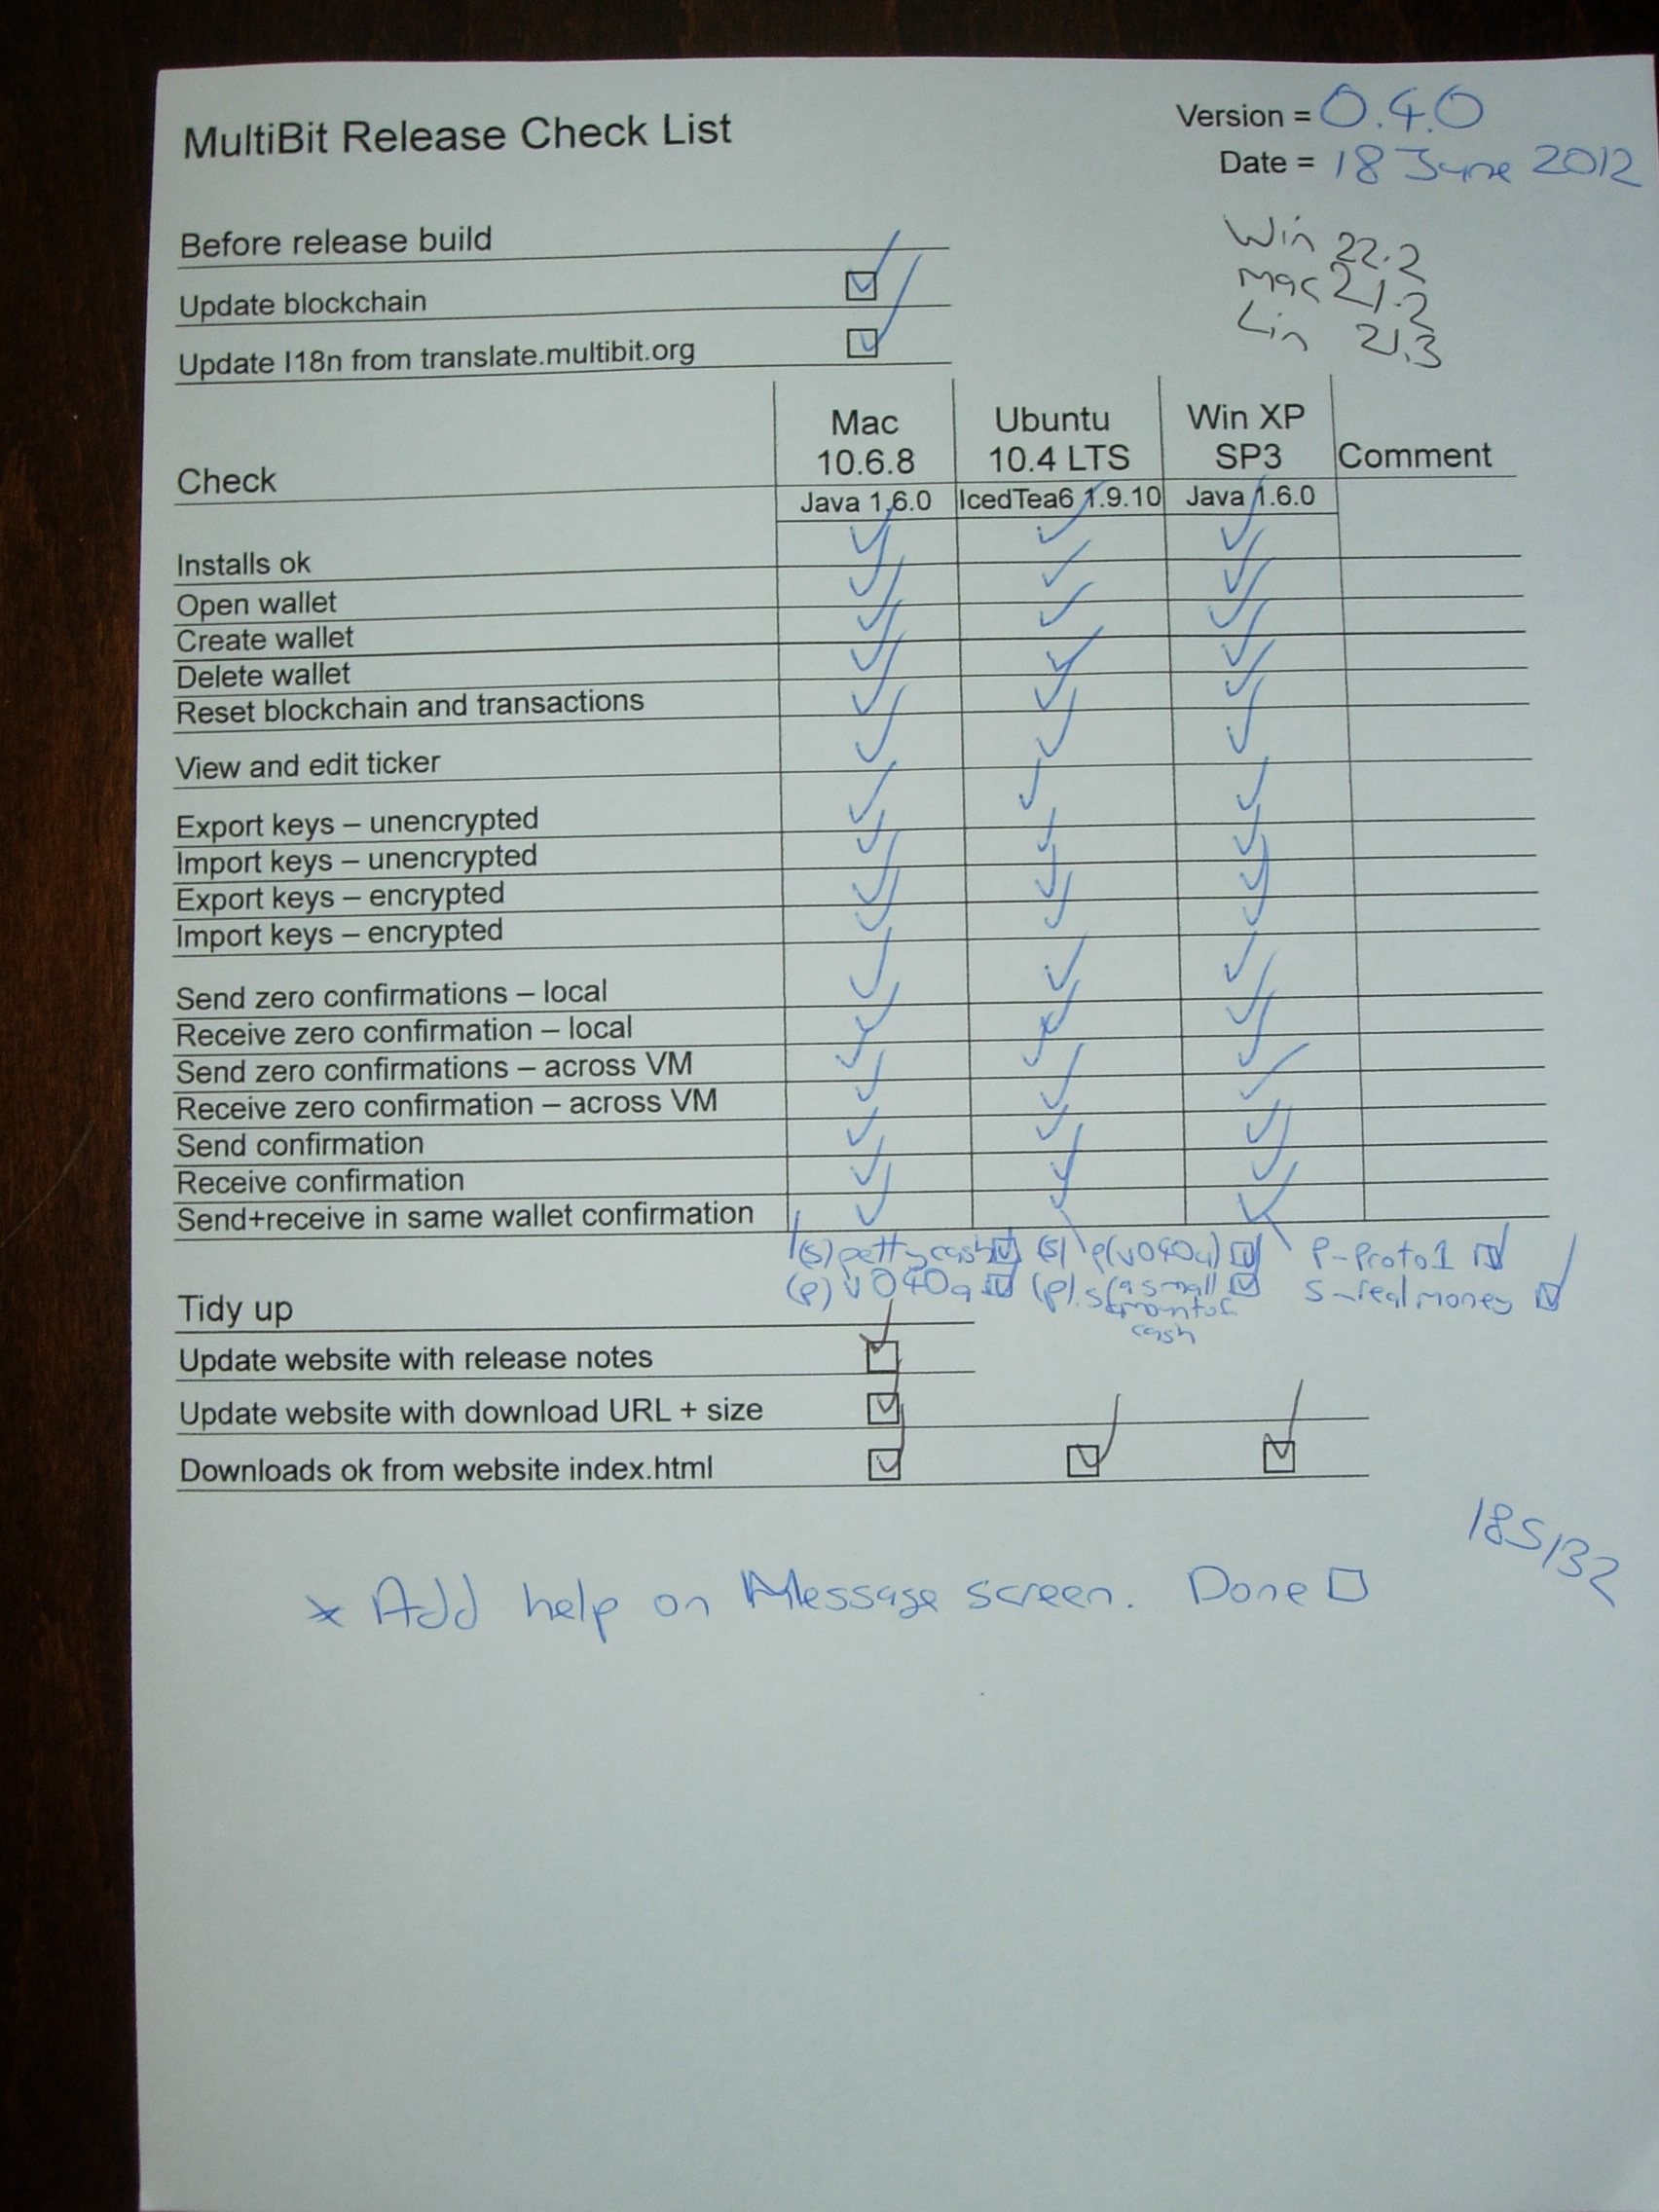 MultiBit Release Check List
Version = 0.4.0
Date = 18 June 2012
Win 22.2
Mac 21.2
Lin 21.3
Before release build
Update blockchain
Update I18n from translate.multibit.org
Check
Mac 10.6.8
Ubuntu 10.4 LTS
Win XP SP3
Comment
Java 1.6.0
IcedTea6 1.9.10
Java 1.6.0
Installs ok
Open wallet
Create wallet
Delete wallet
Reset blockchain and transactions
View and edit ticker
Export keys – unencrypted
Import keys – unencrypted
Export keys – encrypted
Import keys – encrypted
Send zero confirmations – local
Receive zero confirmation – local
Send zero confirmations – across VM
Receive zero confirmation – across VM
Send confirmation
Receive confirmation
Send+receive in same wallet confirmation
(s) petty cash (s) P - Proto1
(p) v040a (p) a small S - real money
amount of
cash
Tidy up
Update website with release notes
Update website with download URL + size
Downloads ok from website index.html
185132
* Add help on Message screen. Done